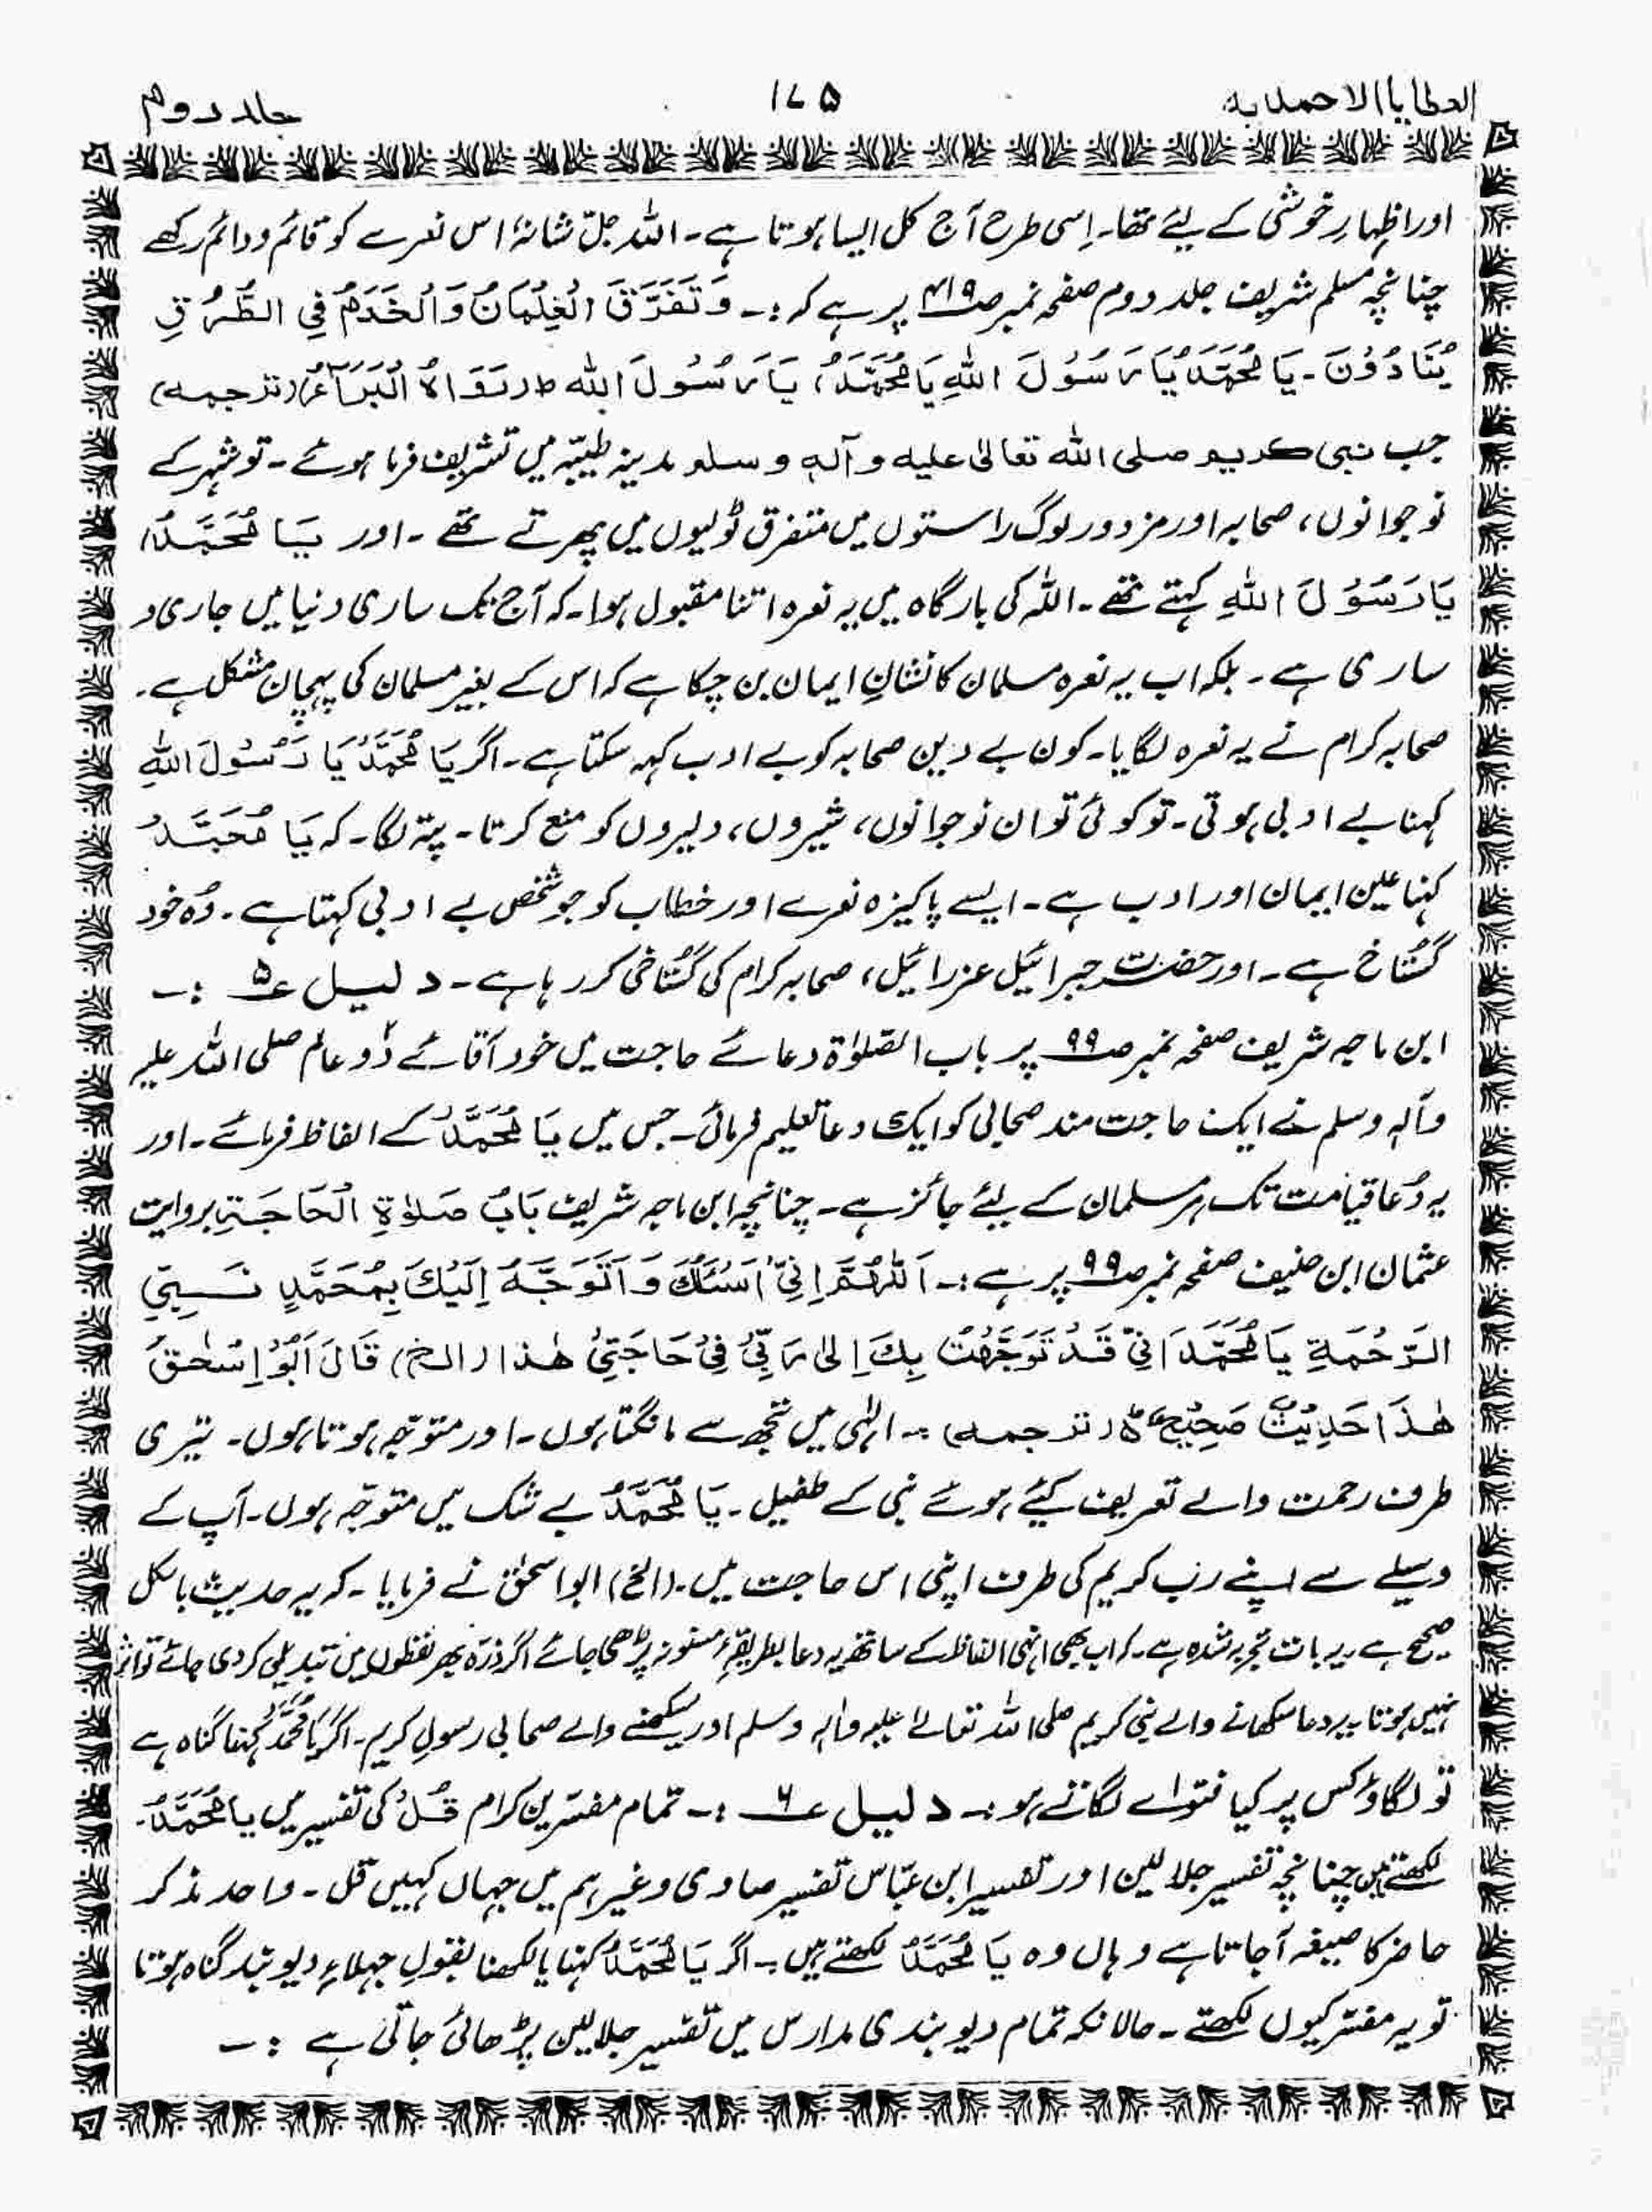 العطایا الاحمدیہ ۱۷۵ جلد دوم
اور اظہارِ خوشی کے لیئے تھا۔ اِسی طرح آج کل ایسا ہوتا ہے۔ اللہ جلّ شانہٗ اس نعرے کو قائم و دائم رکھے
چنانچہ مسلم شریف جلد دوم صفحہ نمبر صـ۴۱۹ پر ہے کہ :۔ وَتَفَرَّقَ الْغِلْمَانُ وَالْخَدَمُ فِي الطُّرُقِ
يُنَادُوْنَ۔ يَا مُحَمَّدُ يَا رَسُوْلَ اللهِ يَا مُحَمَّدُ، يَا رَسُوْلَ الله ط (رَوَاهُ الْبَرَآءُ) (ترجمہ)
جب نبی کریم صلی اللہ تعالیٰ علیہ و آلہٖ وسلم مدینہ طیّبہ میں تشریف فرما ہوئے۔ تو شہر کے
نوجوانوں، صحابہ اور مزدور لوگ راستوں میں متفرق ٹولیوں میں پھرتے تھے ۔ اور يَا مُحَمَّدُ،
يَا رَسُوْلَ اللهِ کہتے تھے۔ اللہ کی بارگاہ میں یہ نعرہ اتنا مقبول ہوا۔ کہ آج تک ساری دنیا میں جاری و
ساری ہے ۔ بلکہ اب یہ نعرہ مسلمان کا نشانِ ایمان بن چکا ہے کہ اس کے بغیر مسلمان کی پہچان مشکل ہے۔
صحابہ کرام نے یہ نعرہ لگایا۔ کون بے دین صحابہ کو بے ادب کہہ سکتا ہے۔ اگر يَا مُحَمَّدُ يَا رَسُوْلَ اللهِ
کہنا بے ادبی ہوتی۔ تو کوئی تو ان نوجوانوں، شیروں، دلیروں کو منع کرتا۔ پتہ لگا۔ کہ يَا مُحَمَّدُ
کہنا عین ایمان اور ادب ہے۔ ایسے پاکیزہ نعرے اور خطاب کو جو شخص بے ادبی کہتا ہے۔ وُہ خود
گُستاخ ہے۔ اور حضرت جبرائیل عزرائیل، صحابہ کرام کی گُستاخی کر رہا ہے۔ دلیل ؏۵ :۔
ابن ماجہ شریف صفحہ نمبر صـ۹۹ پر باب الصّلوٰۃ دعائے حاجت میں خود آقائے دُو عالم صلی اللہ علیہ
وآلہٖ وسلم نے ایک حاجت مند صحابی کو ایک دعا تعلیم فرمائی۔ جس میں يَا مُحَمَّدُ کے الفاظ فرمائے۔ اور
یہ دُعا قیامت تک ہر مسلمان کے لیئے جائز ہے۔ چنانچہ ابن ماجہ شریف بَابُ صَلٰوةِ الْحَاجَةِ بروایت
عثمان ابن حنیف صفحہ نمبر صـ۹۹ پر ہے :۔ اَللّٰهُمَّ اِنِّيْ اَسْئَلُكَ وَاَتَوَجَّهُ اِلَيْكَ بِمُحَمَّدٍ نَبِيِّ
الرَّحْمَةِ يَا مُحَمَّدُ اِنِّيْ قَدْ تَوَجَّهْتُ بِكَ اِلىٰ رَبِّيْ فِيْ حَاجَتِيْ هٰذا (الخ) قَالَ اَبُوْ اِسْحٰقَ
هٰذَا حَدِيْثٌ صَحِيْحٌ ط (ترجمہ) :۔ الہٰی میں تجھ سے مانگتا ہوں۔ اور متوجّہ ہوتا ہوں۔ تیری
طرف رحمت والے تعریف کیئے ہوئے نبی کے طفیل۔ يَا مُحَمَّدُ بے شک میں متوجّہ ہوں۔ آپ کے
وسیلے سے اپنے رب کریم کی طرف اپنی اس حاجت میں۔ (الخ) ابو اسحٰق نے فرمایا۔ کہ یہ حدیث بالکل
صحیح ہے یہ بات تجربہ شدہ ہے۔ کہ اب بھی انہی الفاظ کے ساتھ یہ دعا بطریقۂ مسنونہ پڑھی جائے اگر ذرّہ بھر لفظوں میں تبدیلی کر دی جائے تو اثر
نہیں ہوتا یہ دعا سکھانے والے نبی کریم صلی اللہ تعالےٰ علیہ واٰلہٖ وسلم اور سیکھنے والے صحابی رسولِ کریم۔ اگر يَا مُحَمَّدُ کہنا گناہ ہے
تو لگاؤ کس پر کیا فتواے لگاتے ہو :۔ دلیل ؏۶ :۔ تمام مفسّرین کرام قُلْ کی تفسیر میں يا مُحَمَّدُ۔
لکھتے ہیں چنانچہ تفسیر جلالین اور تفسیر ابن عبّاس تفسیر صاوی وغیرہم میں جہاں کہیں قل۔ واحد مذکر
حاضر کا صیغہ آجاتا ہے وہاں وہ يَا مُحَمَّدُ لکھتے ہیں :۔ اگر يَا مُحَمَّدُ کہنا یا لکھنا بقولِ جہلاءِ دیوبند گناہ ہوتا
تو یہ مفسّر کیوں لکھتے۔ حالانکہ تمام دیوبندی مدارس میں تفسیر جلالین پڑھائی جاتی ہے :۔